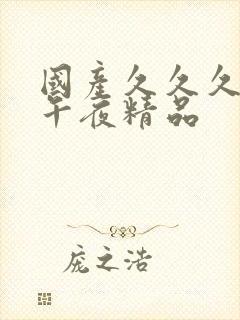 國產久久久
午夜精品
庞之浩